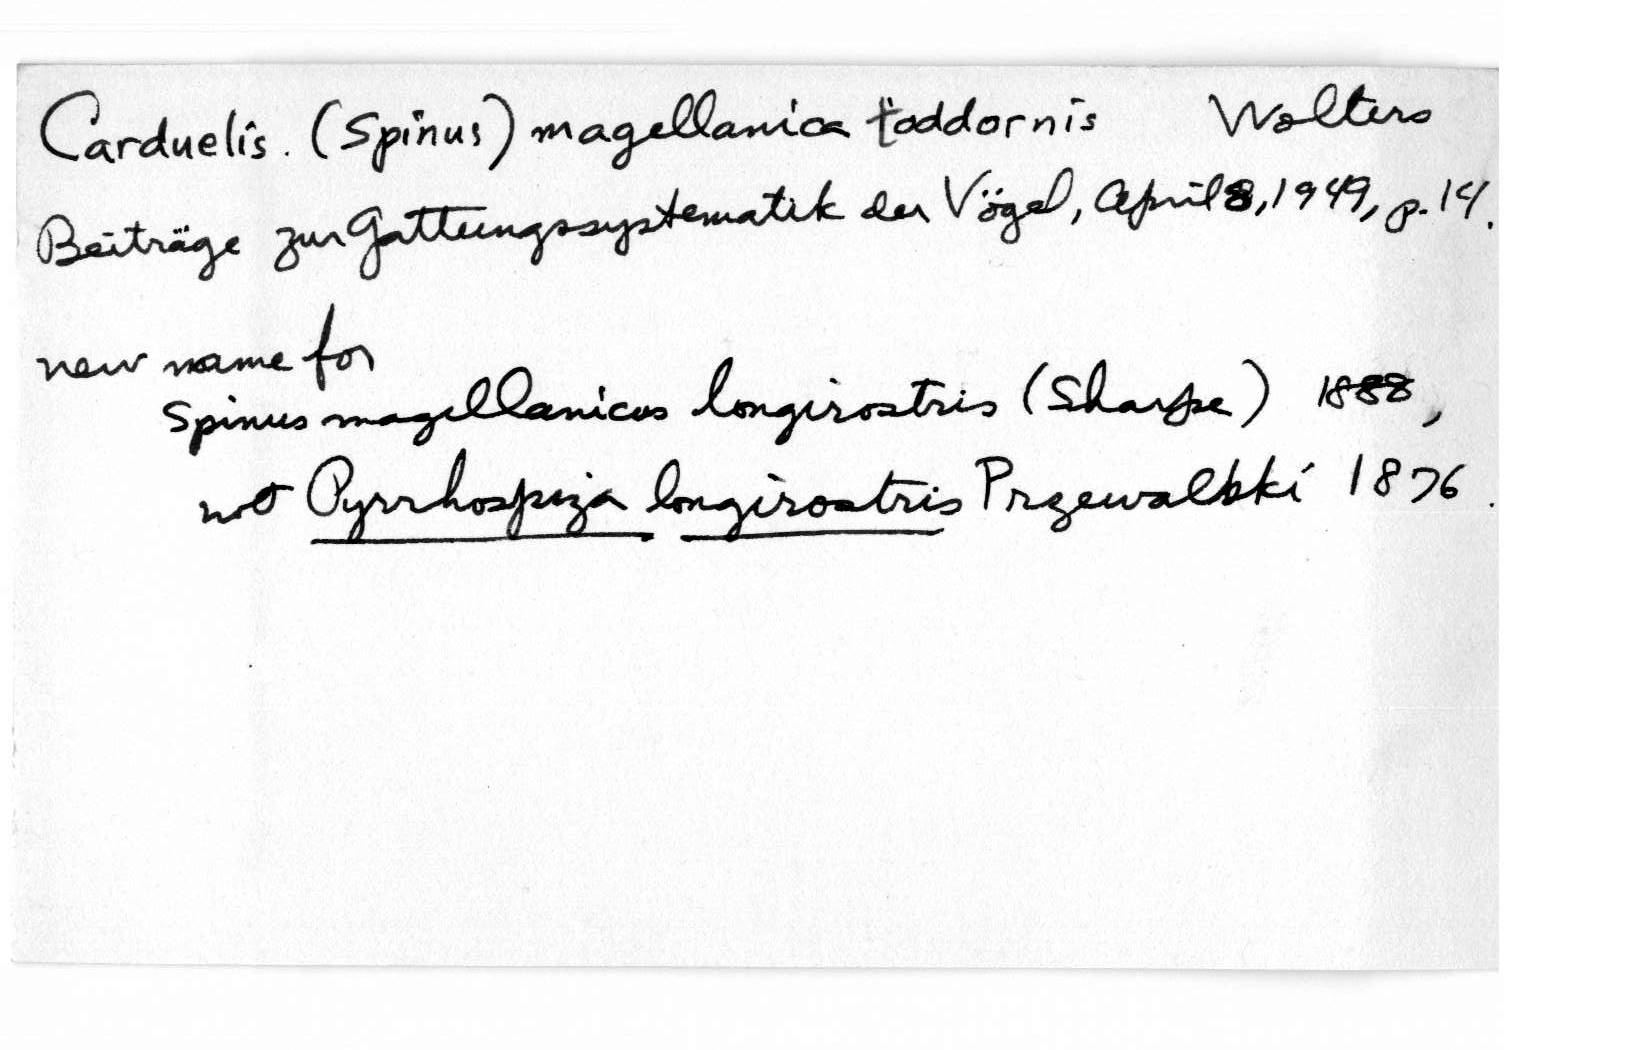 Carduelis. (Spinus) magellanica toddornis Wolters
Beiträge zur Gattungssystematik der Vögel, April 8, 1949, p. 14.
new name for
Spinus magellanicus longirostris (Sharpe) 1888,
not Pyrrhospiza longirostris Przewalski 1876.